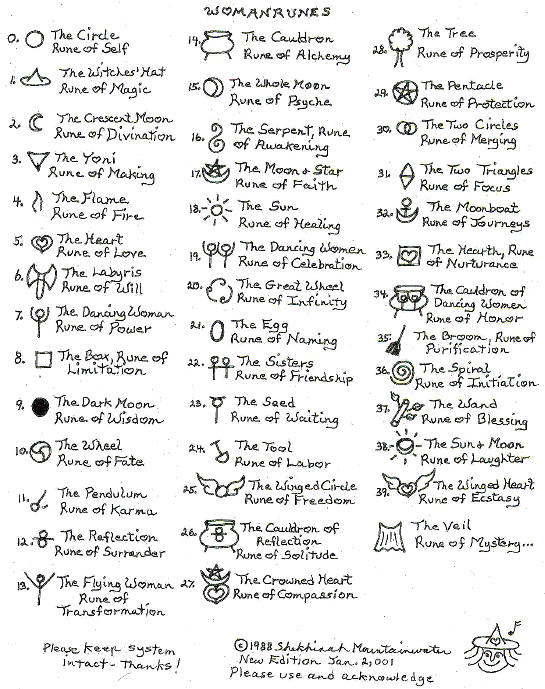 WOMANRUNES
0. The Circle
Rune of Self
1. The Witches' Hat
Rune of Magic
2. The Crescent Moon
Rune of Divination
3. The Yoni
Rune of Making
4. The Flame
Rune of Fire
5. The Heart
Rune of Love
6. The Labyris
Rune of Will
7. The Dancing Woman
Rune of Power
8. The Box, Rune of
Limitation
9. The Dark Moon
Rune of Wisdom
10. The Wheel
Rune of Fate
11. The Pendulum
Rune of Karma
12. The Reflection
Rune of Surrander
13. The Flying Woman
Rune of
Transformation
14. The Cauldron
Rune of Alchemy
15. The Whole Moon
Rune of Psyche
16. The Serpent, Rune
of Awakening
17. The Moon & Star
Rune of Faith
18. The Sun
Rune of Healing
19. The Dancing Women
Rune of Celebration
20. The Great Wheel
Rune of Infinity
21. The Egg
Rune of Naming
22. The Sisters
Rune of Friendship
23. The Seed
Rune of Waiting
24. The Tool
Rune of Labor
25. The Winged Circle
Rune of Freedom
26. The Cauldron of
Reflection
Rune of Solitude
27. The Crowned Heart
Rune of Compassion
28. The Tree
Rune of Prosperity
29. The Pentacle
Rune of Protection
30. The Two Circles
Rune of Merging
31. The Two Triangles
Rune of Focus
32. The Moonboat
Rune of Journeys
33. The Hearth, Rune
of Nurturance
34. The Cauldron of
Dancing Women
Rune of Honor
35. The Broom, Rune of
Purification
36. The Spiral
Rune of Initiation
37. The Wand
Rune of Blessing
38. The Sun & Moon
Rune of Laughter
39. The Winged Heart
Rune of Ecstasy
The Veil
Rune of Mystery...
Please keep system
intact - Thanks!
©1988 Shekhinah Mountainwater
New Edition Jan. 2,001
Please use and acknowledge